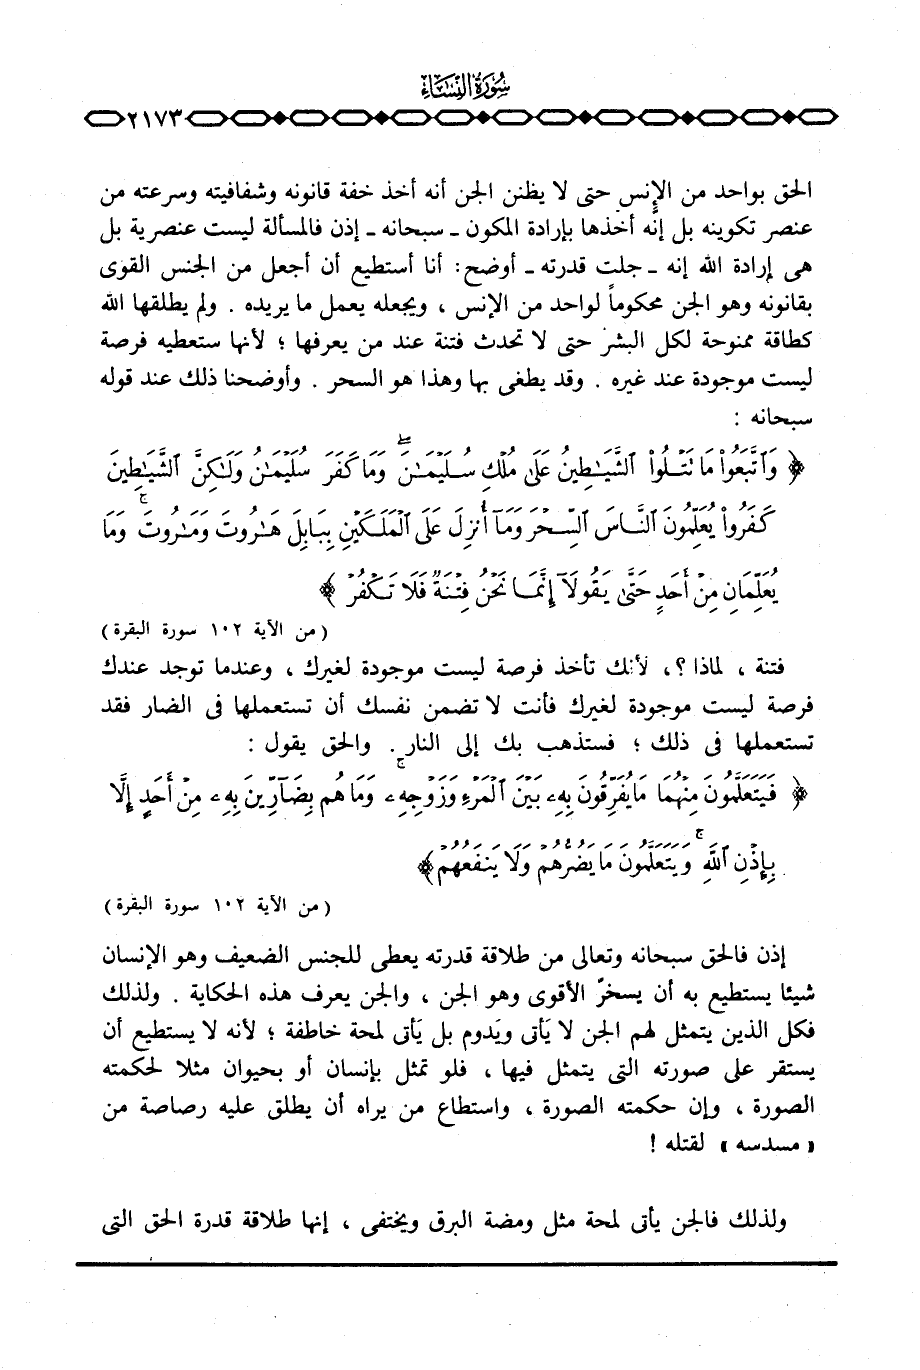 سُورَةُ النِّسَاءِ
٢١٧٣
الحق بواحد من الإنس حتى لا يظنن الجن أنه أخذ خفة قانونه وشفافيته وسرعته من
عنصر تكوينه بل إنَّه أخذها بإرادة المكون ـ سبحانه ـ إذن فالمسألة ليست عنصرية بل
هى إرادة الله إنه ـ جلت قدرته ـ أوضح : أنا أستطيع أن أجعل من الجنس القوى
بقانونه وهو الجن محكوماً لواحد من الإنس ، ويجعله يعمل ما يريده . ولم يطلقها الله
كطاقة ممنوحة لكل البشر حتى لا تحدث فتنة عند من يعرفها ؛ لأنها ستعطيه فرصة
ليست موجودة عند غيره . وقد يطغى بها وهذا هو السحر . وأوضحنا ذلك عند قوله
سبحانه :
﴿ وَاتَّبَعُواْ مَا تَتْلُواْ الشَّيَـٰطِينُ عَلَىٰ مُلْكِ سُلَيْمَـٰنَ ۖ وَمَا كَفَرَ سُلَيْمَـٰنُ وَلَـٰكِنَّ الشَّيَـٰطِينَ
كَفَرُواْ يُعَلِّمُونَ النَّاسَ السِّحْرَ وَمَآ أُنزِلَ عَلَى الْمَلَكَيْنِ بِبَابِلَ هَـٰرُوتَ وَمَـٰرُوتَ ۚ وَمَا
يُعَلِّمَانِ مِنْ أَحَدٍ حَتَّىٰ يَقُولَآ إِنَّمَا نَحْنُ فِتْنَةٌ فَلَا تَكْفُرْ ﴾
( من الآية ١٠٢ سورة البقرة )
فتنة ، لماذا ؟ ، لأنك تأخذ فرصة ليست موجودة لغيرك ، وعندما توجد عندك
فرصة ليست موجودة لغيرك فأنت لا تضمن نفسك أن تستعملها فى الضار فقد
تستعملها فى ذلك ؛ فستذهب بك إلى النار . والحق يقول :
﴿ فَيَتَعَلَّمُونَ مِنْهُمَا مَا يُفَرِّقُونَ بِهِۦ بَيْنَ الْمَرْءِ وَزَوْجِهِۦ ۚ وَمَا هُم بِضَآرِّينَ بِهِۦ مِنْ أَحَدٍ إِلَّا
بِإِذْنِ اللَّهِ ۚ وَيَتَعَلَّمُونَ مَا يَضُرُّهُمْ وَلَا يَنفَعُهُمْ ﴾
( من الآية ١٠٢ سورة البقرة )
إذن فالحق سبحانه وتعالى من طلاقة قدرته يعطى للجنس الضعيف وهو الإنسان
شيئا يستطيع به أن يسخرّ الأقوى وهو الجن ، والجن يعرف هذه الحكاية . ولذلك
فكل الذين يتمثل لهم الجن لا يَأتى ويَدوم بل يَأتى لمحة خاطفة ؛ لأنه لا يستطيع أن
يستقر على صورته التى يتمثل فيها ، فلو تمثل بإنسان أو بحيوان مثلا لحكمته
الصورة ، وإن حكمته الصورة ، واستطاع من يراه أن يطلق عليه رصاصة من
« مسدسه » لقتله !
ولذلك فالجن يأتى لمحة مثل ومضة البرق ويختفى ، إنها طلاقة قدرة الحق التى